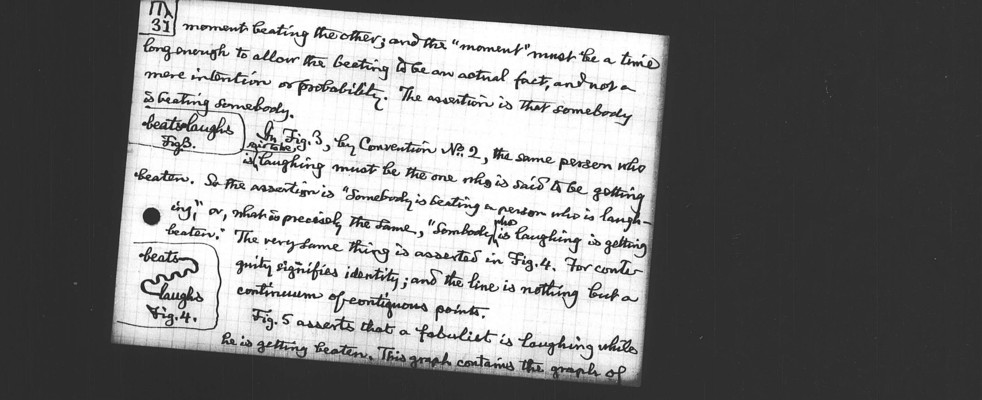 31
moment beating the other; and the "moment" must be a time
long enough to allow the beating to be an actual fact, and not a
mere intention or probability. The assertion is that somebody
is beating somebody.
beats laughs
Fig 3.
In Fig. 3, by Convention No. 2, the same person who
is laughing must be the one who is said to be getting
beaten. So the assertion is "Somebody is beating a person who is laugh-
ing," or, what is precisely the same, "Somebody who is laughing is getting
beaten." The very same thing is asserted in Fig. 4. For conti-
guity signifies identity; and the line is nothing but a
continuum of contiguous points.
beats
laughs
Fig. 4.
Fig. 5 asserts that a fabulist is laughing while
he is getting beaten. This graph contains the graph of